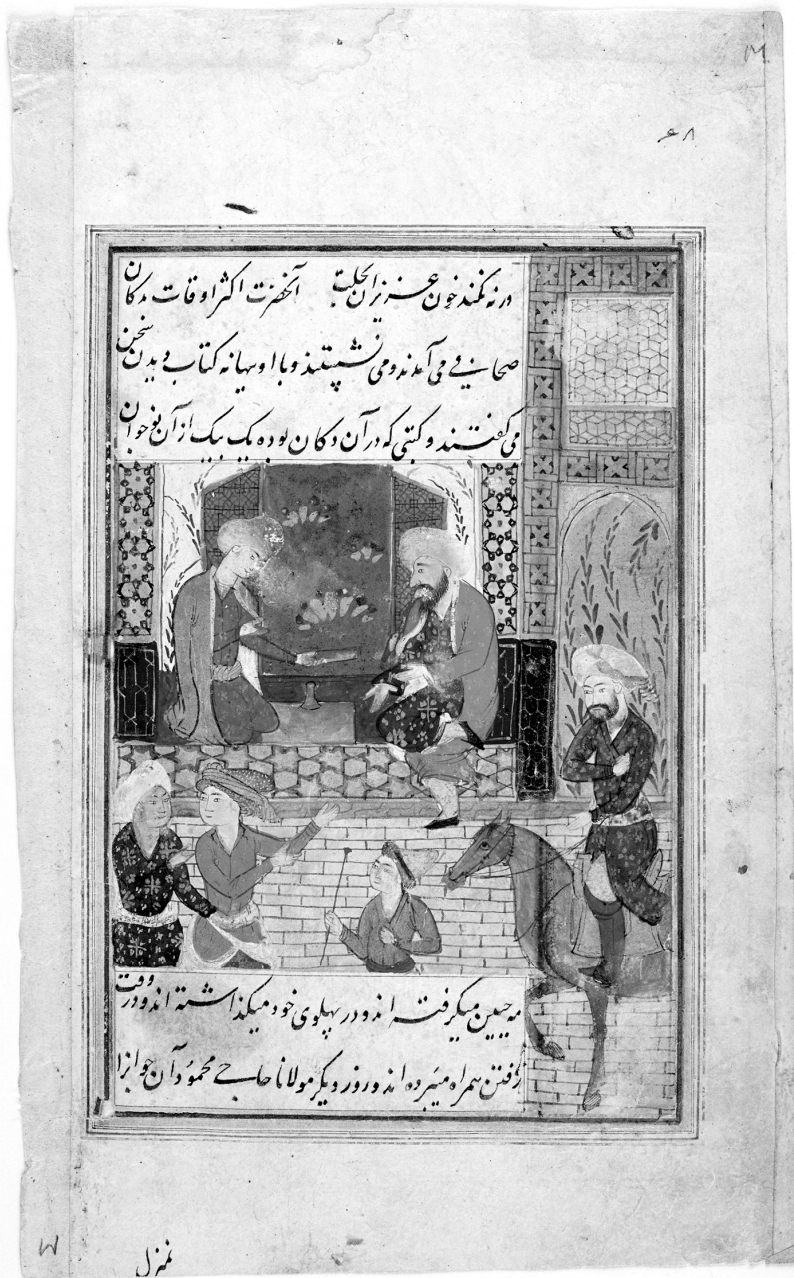 ۶۸
ورنه نکند خون عزیزان آنحضرت اکثر اوقات بدکان
صحافی می آمدند و می نشستند و با او بهانه کتاب دیدن سخن
می گفتند و کتبی که در آن دکان بوده یک بیک از آن نوجوان
مه جبین میگرفته اند و در پهلوی خود میگذاشته اند و در وقت
رفتن همراه میبرده اند و روز دیگر مولانا حاجی محمود آن جوانرا
بمنزل